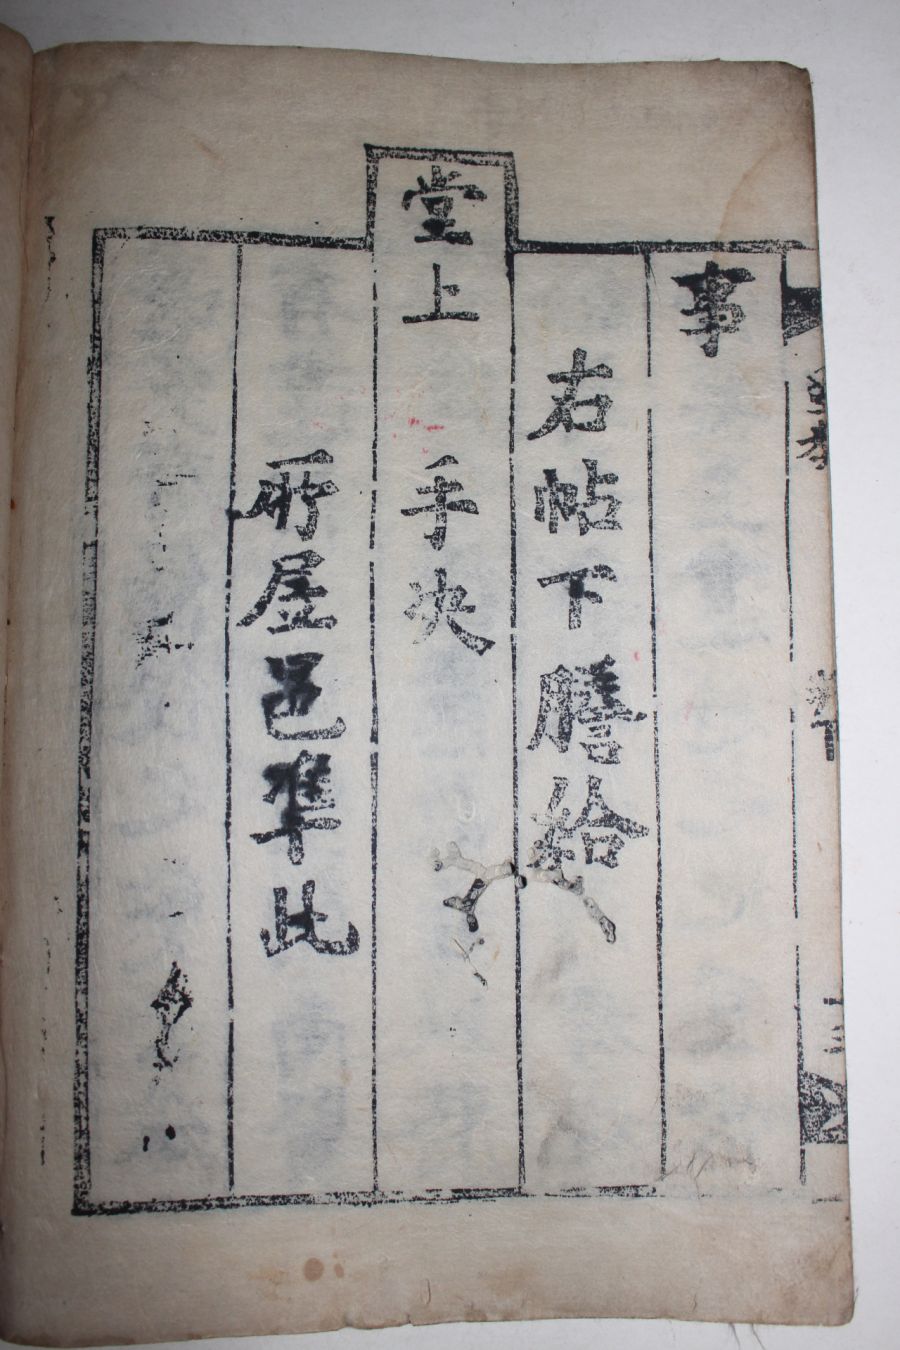 事
右帖下膳給
堂上 手决
所屋邑準此